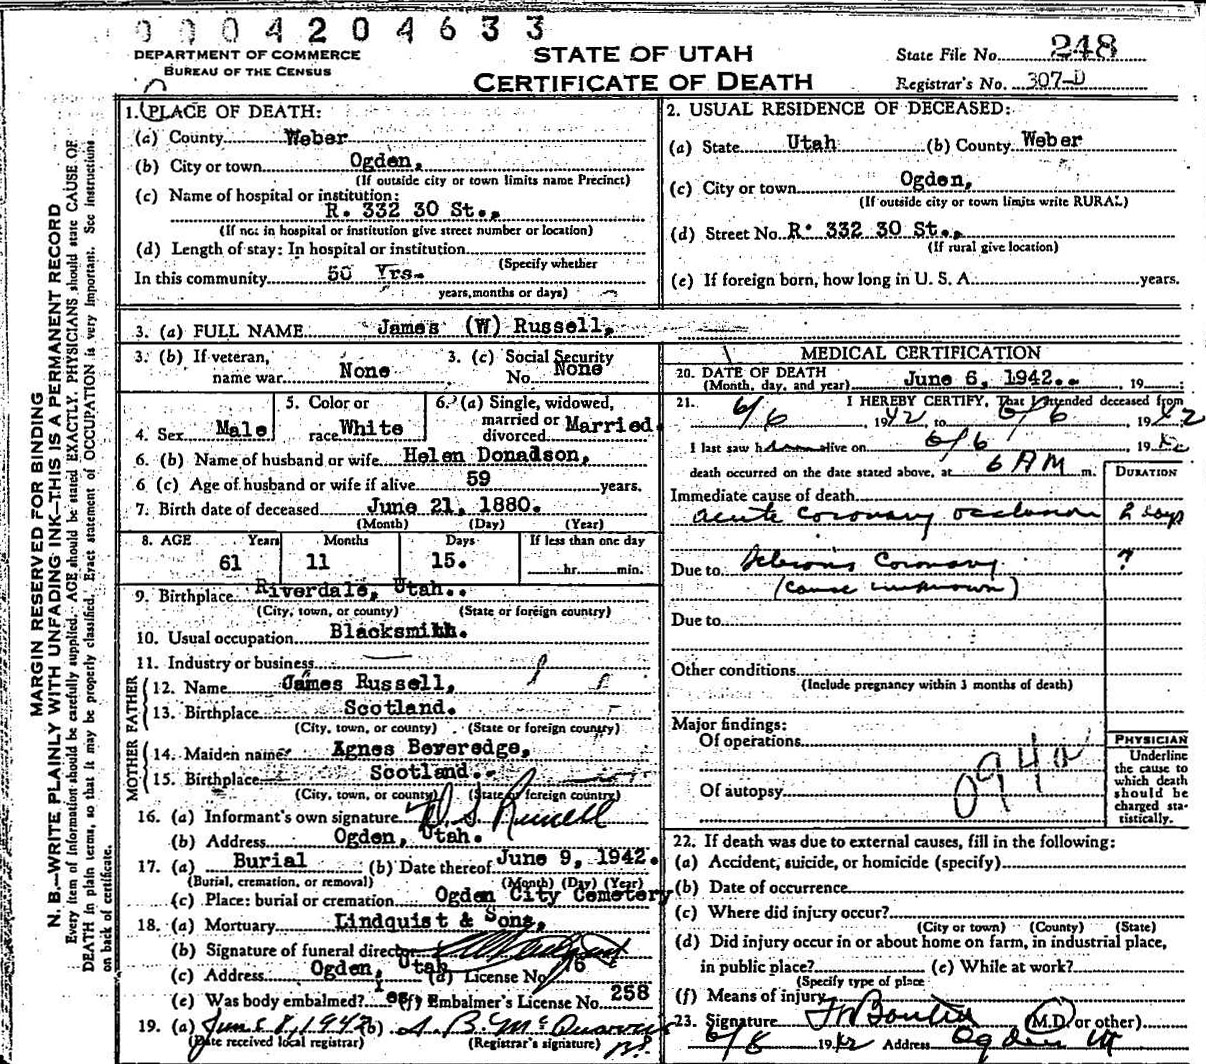 0004204633
DEPARTMENT OF COMMERCE
BUREAU OF THE CENSUS
STATE OF UTAH
CERTIFICATE OF DEATH
State File No. 248
Registrar's No. 307-D
MARGIN RESERVED FOR BINDING
N. B.—WRITE PLAINLY WITH UNFADING INK—THIS IS A PERMANENT RECORD
Every item of information should be carefully supplied. AGE should be stated EXACTLY. PHYSICIANS should state CAUSE OF
DEATH in plain terms, so that it may be properly classified. Exact statement of OCCUPATION is very important. See instructions
on back of certificate.
1. PLACE OF DEATH:
(a) County Weber
(b) City or town Ogden,
(If outside city or town limits name Precinct)
(c) Name of hospital or institution:
R. 332 30 St.,
(If not in hospital or institution give street number or location)
(d) Length of stay: In hospital or institution
(Specify whether
In this community 50 Yrs.
years, months or days)
2. USUAL RESIDENCE OF DECEASED:
(a) State Utah (b) County Weber
(c) City or town Ogden,
(If outside city or town limits write RURAL)
(d) Street No. R. 332 30 St.,
(If rural give location)
(e) If foreign born, how long in U. S. A. years.
3. (a) FULL NAME James (W) Russell,
3. (b) If veteran, name war None
3. (c) Social Security No. None
4. Sex Male
5. Color or race White
6. (a) Single, widowed, married or divorced Married.
6. (b) Name of husband or wife Helen Donadson,
6 (c) Age of husband or wife if alive 59 years.
7. Birth date of deceased June 21, 1880.
(Month) (Day) (Year)
8. AGE Years Months Days If less than one day
61 11 15. hr. min.
9. Birthplace Riverdale, Utah..
(City, town, or county) (State or foreign country)
10. Usual occupation Blacksmith.
11. Industry or business
FATHER
12. Name James Russell,
13. Birthplace Scotland.
(City, town, or county) (State or foreign country)
MOTHER
14. Maiden name Agnes Beveredge,
15. Birthplace Scotland.
(City, town, or county) (State or foreign country)
16. (a) Informant's own signature Russell
(b) Address Ogden, Utah.
17. (a) Burial (b) Date thereof June 9, 1942.
(Burial, cremation, or removal) (Month) (Day) (Year)
(c) Place: burial or cremation Ogden City Cemetery
18. (a) Mortuary Lindquist & Sons,
(b) Signature of funeral director
(c) Address Ogden, Utah (d) License No. 76
(e) Was body embalmed? Yes (f) Embalmer's License No. 258
19. (a) June 8, 1942 (b)
(Date received local registrar) (Registrar's signature)
MEDICAL CERTIFICATION
20. DATE OF DEATH
(Month, day, and year) June 6, 1942.. , 19 :
21. I HEREBY CERTIFY, That I attended deceased from
6/6 1942, to 6/6 1942
I last saw h alive on 6/6 19
death occurred on the date stated above, at 6 AM m.
DURATION
Immediate cause of death
acute coronary occlusion 2 days
Due to Coronary ?
(cause unknown)
Due to
Other conditions
(Include pregnancy within 3 months of death)
Major findings:
Of operations
Of autopsy
094a
PHYSICIAN
Underline
the cause to
which death
should be
charged sta-
tistically.
22. If death was due to external causes, fill in the following:
(a) Accident, suicide, or homicide (specify)
(b) Date of occurrence
(c) Where did injury occur?
(City or town) (County) (State)
(d) Did injury occur in or about home on farm, in industrial place,
in public place? (e) While at work?
(Specify type of place
(f) Means of injury
23. Signature (M.D. or other)
6/8 1942 Address Ogden Ut